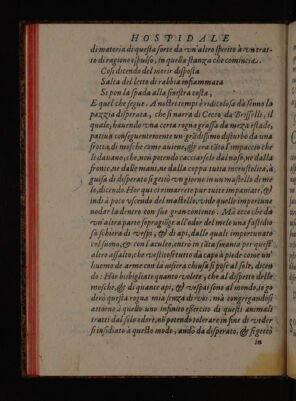 HOSPIDALE
di materia di questa sorte da vn'altro spirito à vn trat-
to di ragione espulso, in quella stanza che comincia.
Cosi dicendo del morir disposta
Salta del letto di rabbia infiammata
Si pon la spada alla sinistra costa,
E quel che segue. A nostri tempi è ridicolosa da senno la
pazzia disperata, che si narra di Cecco da
quale, hauendo vna certa rogna grossa da meza estade,
patiua conseguentemente un grãdissimo disturbo da una
frotta di mosche come auiene, & era tãta l'impaccio che
li dauano, che, non potendo cacciarsele dal naso, ne dalla
fronte, ne dalle mani, ne dalla coppa tutta incrostolita, à
guisa di disperato si gettò vn giorno in un mastello di me
le, dicendo. Hor qui ci rimarrete pur tutte impaniate, &
indi à poco vscendo del mastello, vide quelle importune
nodar la dentro con suo gran contento. Mà ecco che dà
vn'altra parte sopragiõge all'odor del mele una fastidio
sa schiera di vespi, & di api, dalle quali importunato
col suono, & con l'aculeo, entrò in tãta smania per quest'
altro assalto, che vestitosi tutto da capo à piede come un'
huomo de arme con la visiera chiusa si pose al sole, dicen
do: Hor bisbigliate quanto volete, che al dispetto delle
mosche, & di quante api, & vespai sono al mondo, io go
derò questa rogna mia senza di voi, mà congregandosi
attorno à quello uno infinito essercito di questi animali
tratti dal solo odore, nõ potendo tolerare in fine di veder
si insidiato à questo modo, andò da disperato, & si gettò
in